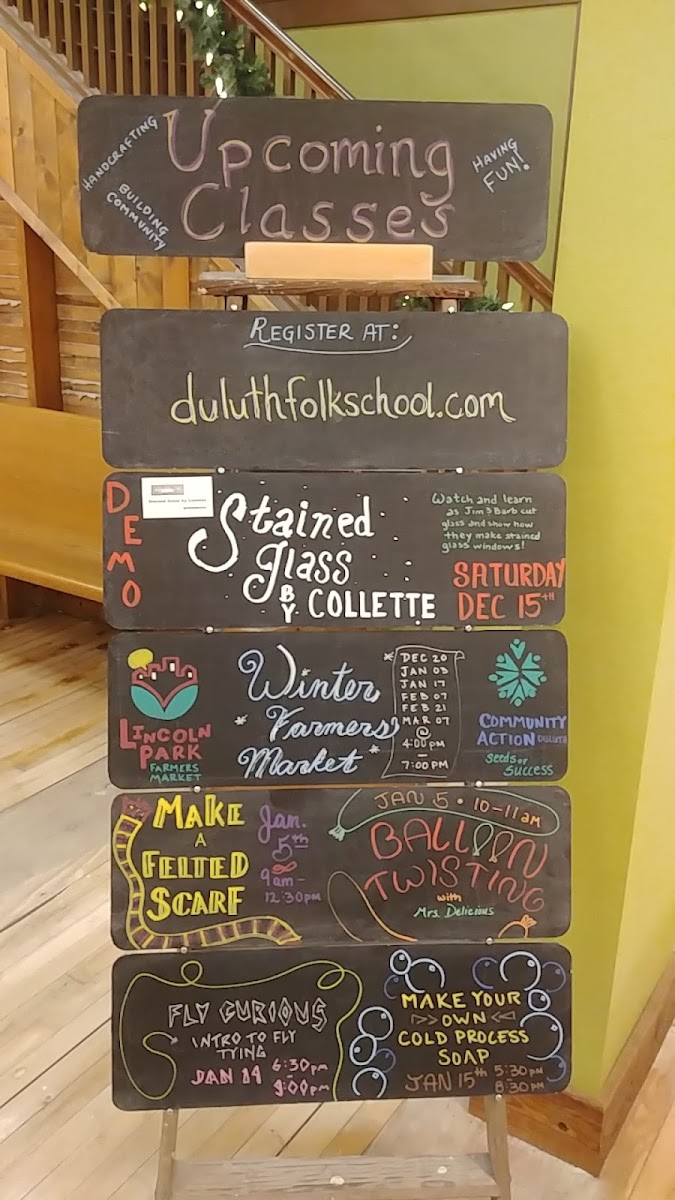 HANDCRAFTING
BUILDING
COMMUNITY
Upcoming
Classes
HAVING
FUN!
REGISTER AT:
duluthfolkschool.com
DEMO
Stained
glass
BY COLLETTE
Watch and learn
as Jim & Barb cut
glass and show how
they make stained
glass windows!
SATURDAY
DEC 15TH
LINCOLN
PARK
FARMERS
MARKET
Winter
Farmers
Market
DEC 20
JAN 03
JAN 17
FEB 07
FEB 21
MAR 07
@
4:00 PM
—
7:00 PM
COMMUNITY
ACTION DULUTH
Seeds of
Success
MAKE
A
FELTED
SCARF
Jan.
5th
9am-
12:30pm
JAN 5 • 10-11am
BALLOON
TWISTING
with
Mrs. Delicious
FLY CURIOUS
INTRO TO FLY
TYING
JAN 14 6:30pm
- 9:00pm
MAKE YOUR
OWN
COLD PROCESS
SOAP
JAN 15th 5:30PM
8:30PM